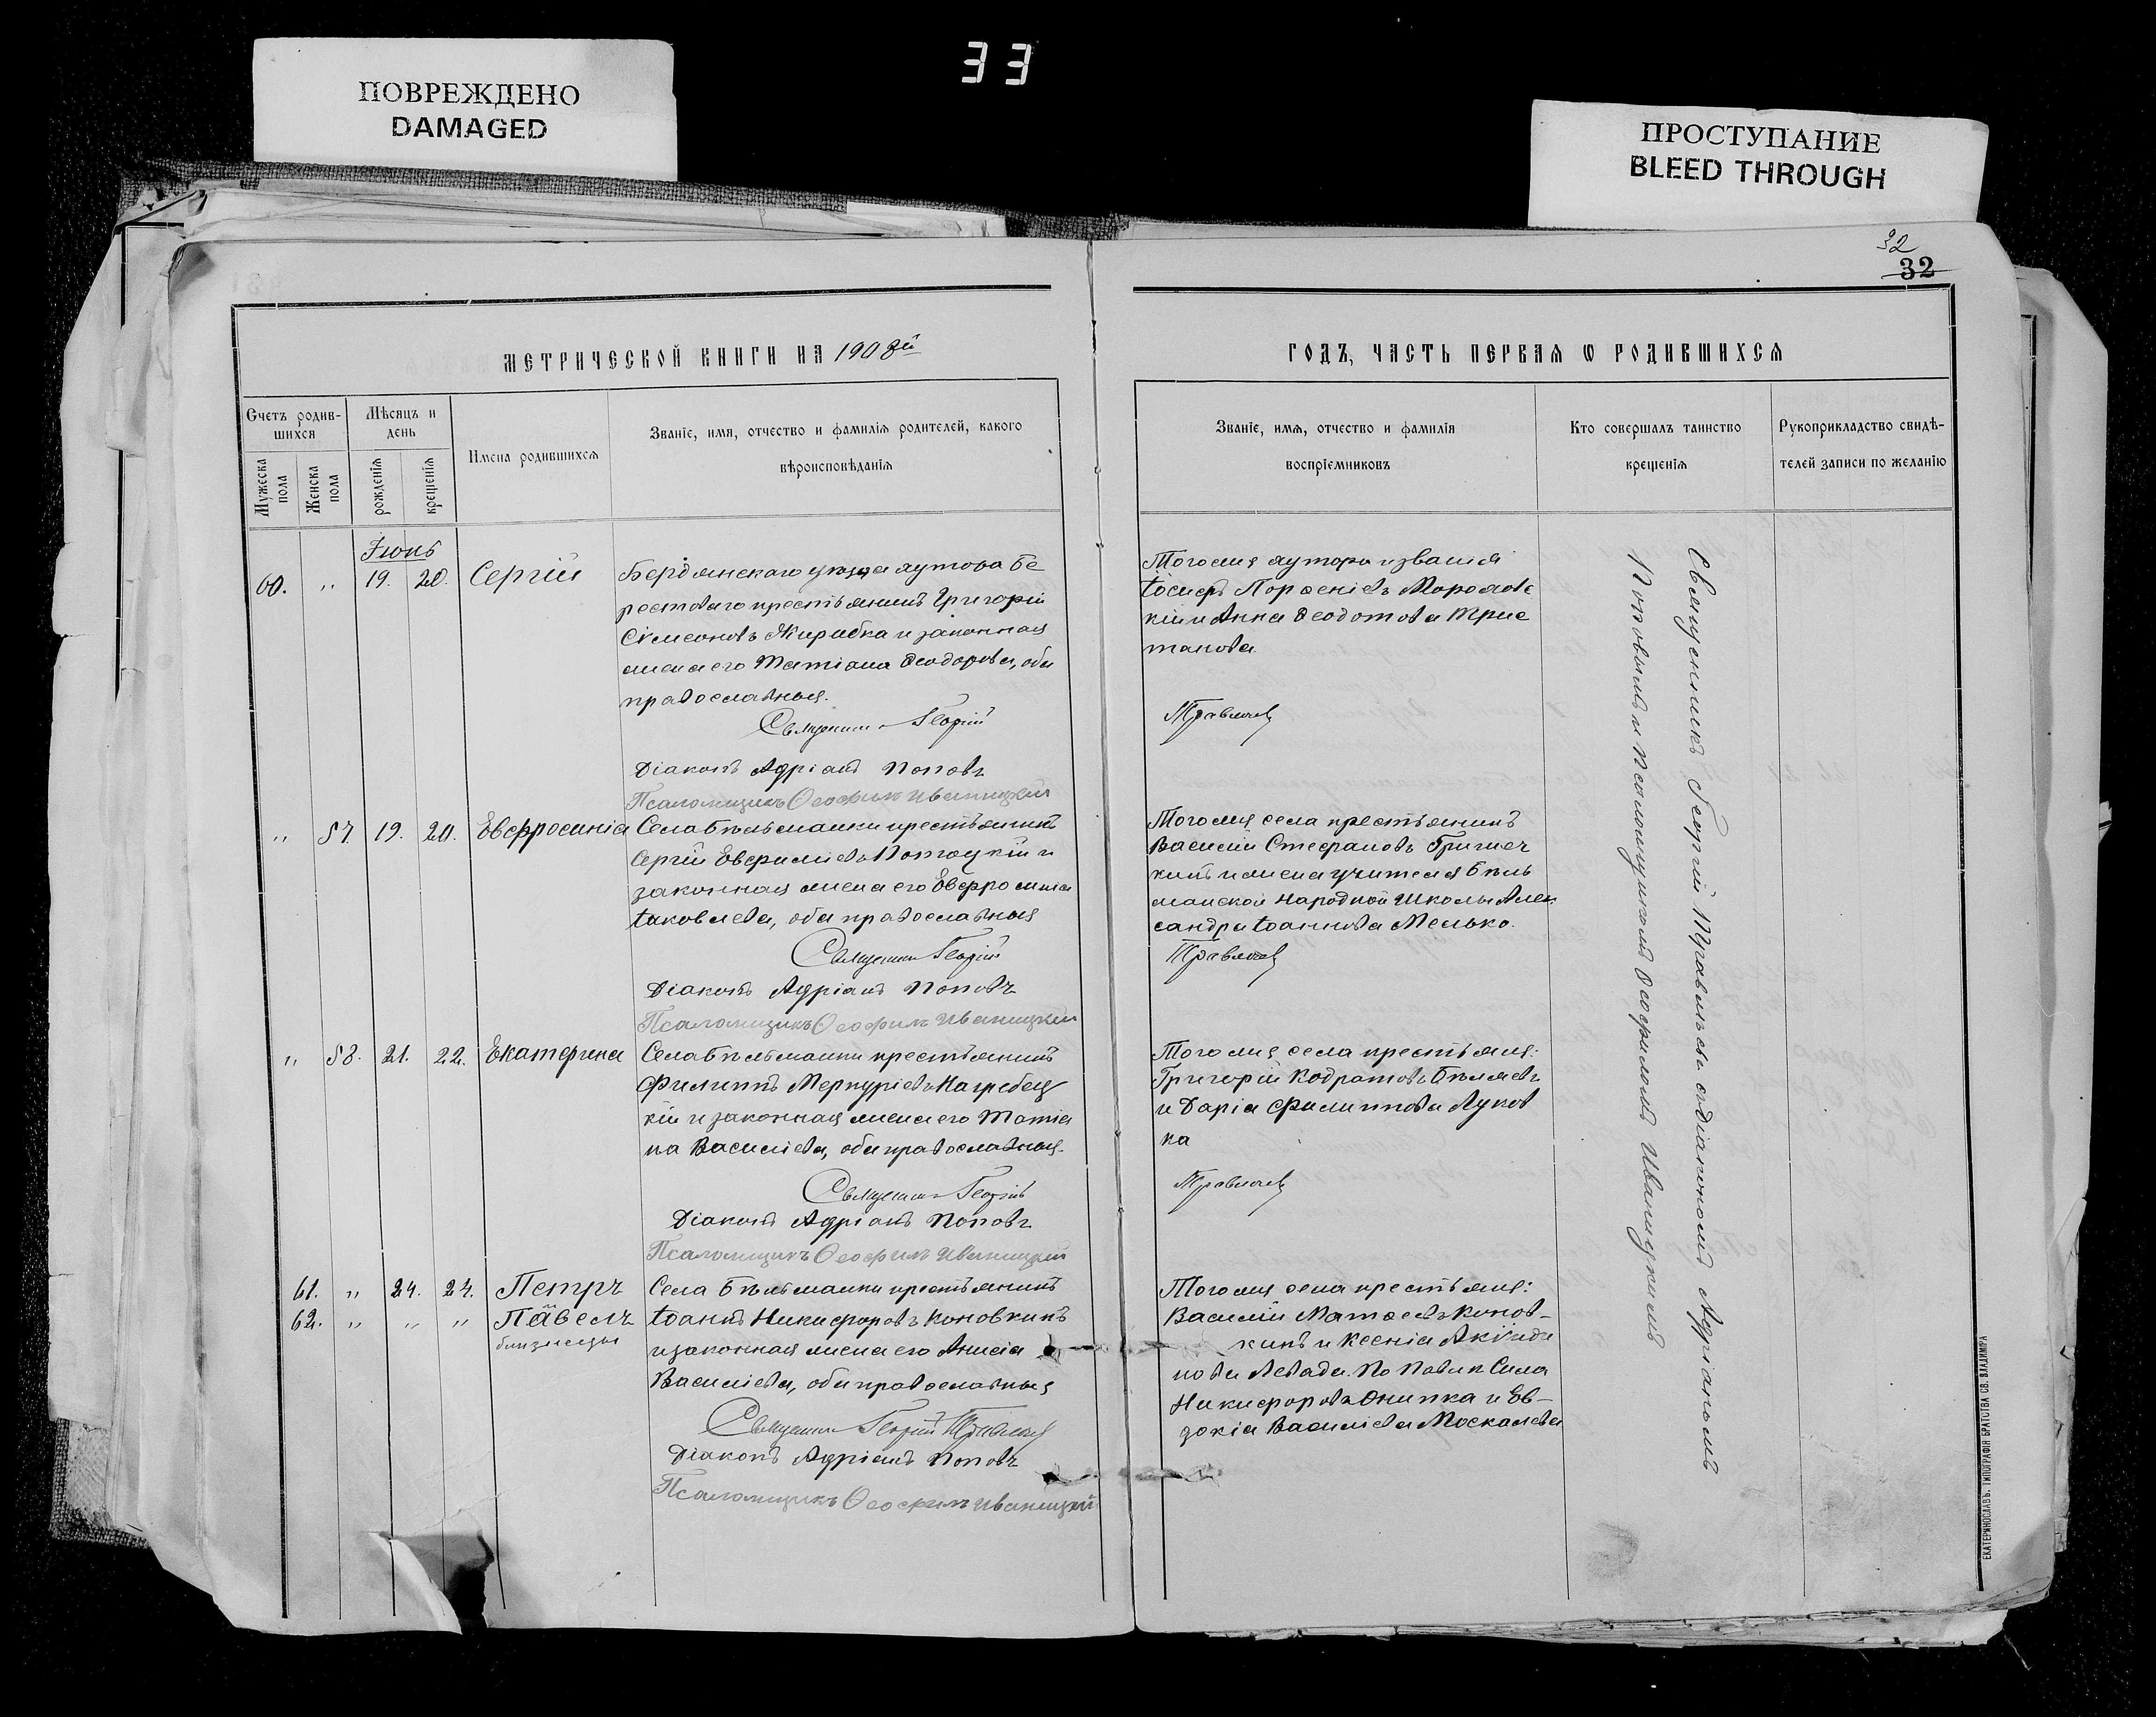 ПОВРЕЖДЕНО
DAMAGED
33
ПРОСТУПАНИЕ
BLEED THROUGH
32
32
МЕТРИЧЕСКОЙ КНИГИ НА 1908й
Счетъ родившихся
Мѣсяцъ и день
Имена родившихся
Званіе, имя, отчество и фамилія родителей, какого
вѣроисповѣданія
Мужеска пола
Женска пола
рожденія
крещенія
Іюнь
60. " 19. 20. Сергій
Бердянскаго уѣзда хутора Бе
рестоваго крестьянинъ Григорій
Сѵмеоновъ и законная
жена его Татіана Ѳеодорова, оба
православныя.
Священникъ Георгій
Діаконъ Адріанъ Поповъ
Псаломщикъ Ѳеофилъ Иваницкій
" 57. 19. 20. Евфросинія
Села Бѣльманки крестьянинъ
Сергій Евфиміевъ Потоцкій и
законная жена его Евфросинія
Іаковлева, оба православныя
Священникъ Георгій
Діаконъ Адріанъ Поповъ
Псаломщикъ Ѳеофилъ Иваницкій
" 58. 21. 22. Екатерина
Села Бѣльманки крестьянинъ
Филиппъ Меркуріевъ Нагребец
кій и законная жена его Татіа
на Василіева, оба православныя.
Священникъ Георгій
Діаконъ Адріанъ Поповъ
Псаломщикъ Ѳеофилъ Иваницкій
61. " 24. 24. Петръ
62. " " " Павелъ
близнецы
Села Бѣльманки крестьянинъ
Іоаннъ Никифоровъ Коновкинъ
и законная жена его Анисія
Василіева, оба православныя
Священникъ Георгій Правлевъ
Діаконъ Адріанъ Поповъ
Псаломщикъ Ѳеофилъ Иваницкій
ГОДЪ, ЧАСТЬ ПЕРВАЯ Ѡ РОДИВШИХСЯ
Званіе, имя, отчество и фамилія
воспріемниковъ
Кто совершалъ таинство
крещенія
Рукоприкладство свидѣ-
телей записи по желанію
Того же хутора и званія
Іосифъ
кій и Анна Ѳеодотова
Того же села крестьянинъ
Василій Стефановъ
кинъ и жена учителя Бѣль
манской Народной Школы Алек
сандра Іоаннова Мелько.
Того же села крестьяне:
Григорій Кодратовъ Бѣляевъ
и Дарія Филиппова Луков
ка
Того же села крестьяне:
Василій Матѳеевъ Конов-
кинъ и Ксенія Акѵнди
нова Левада. По Павлѣ Сила
Никифоровъ Онипка и Ев-
докія Василіева Москалева
Священникъ Георгій съ діакономъ Адріаномъ
Поповымъ и псаломщикомъ Ѳеофиломъ Иваницкимъ
ЕКАТЕРИНОСЛАВЪ. ТИПОГРАФІЯ БРАТСТВА СВ. ВЛАДИМІРА